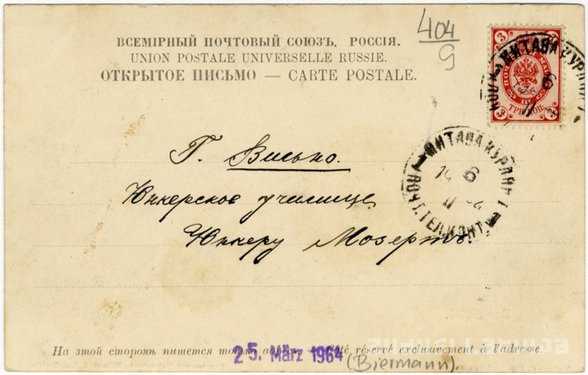 404
9
ВСЕМІРНЫЙ ПОЧТОВЫЙ СОЮЗЪ. РОССІЯ.
UNION POSTALE UNIVERSELLE RUSSIE.
ОТКРЫТОЕ ПИСЬМО — CARTE POSTALE.
3 3
МИТАВА КУРЛЯН
6
Г. Вильно.
МИТАВА КУРЛЯН
14 6
II
ПОЧТ. ТЕЛ. КОНТ.
Юнкерское училище
Юнкеру Мозертъ.
На этой сторонѣ пишется только réservé exclusivement à l'adresse.
25. März 1964
(Biermann).